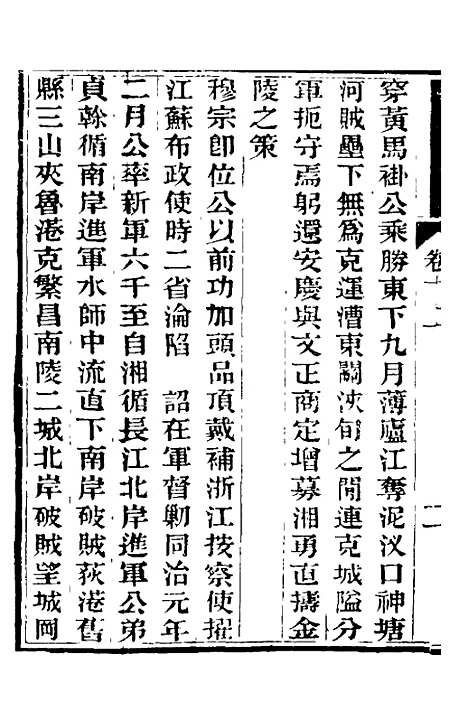 卷十二
二
穿黃馬褂公乘勝東下九月薄廬江奪泥汊口神塘
河賊壘下無爲克運漕東關浹旬之閒連克城隘分
軍扼守焉躬還安慶與文正商定增募湘勇直擣金
陵之策
穆宗卽位公以前功加頭品頂戴補浙江按察使擢
江蘇布政使時二省淪陷 詔在軍督勦同治元年
二月公率新軍六千至自湘循長江北岸進軍公弟
貞榦循南岸進軍水師中流直下南岸破賊荻港舊
縣三山夾魯港克繁昌南陵二城北岸破賊望城岡